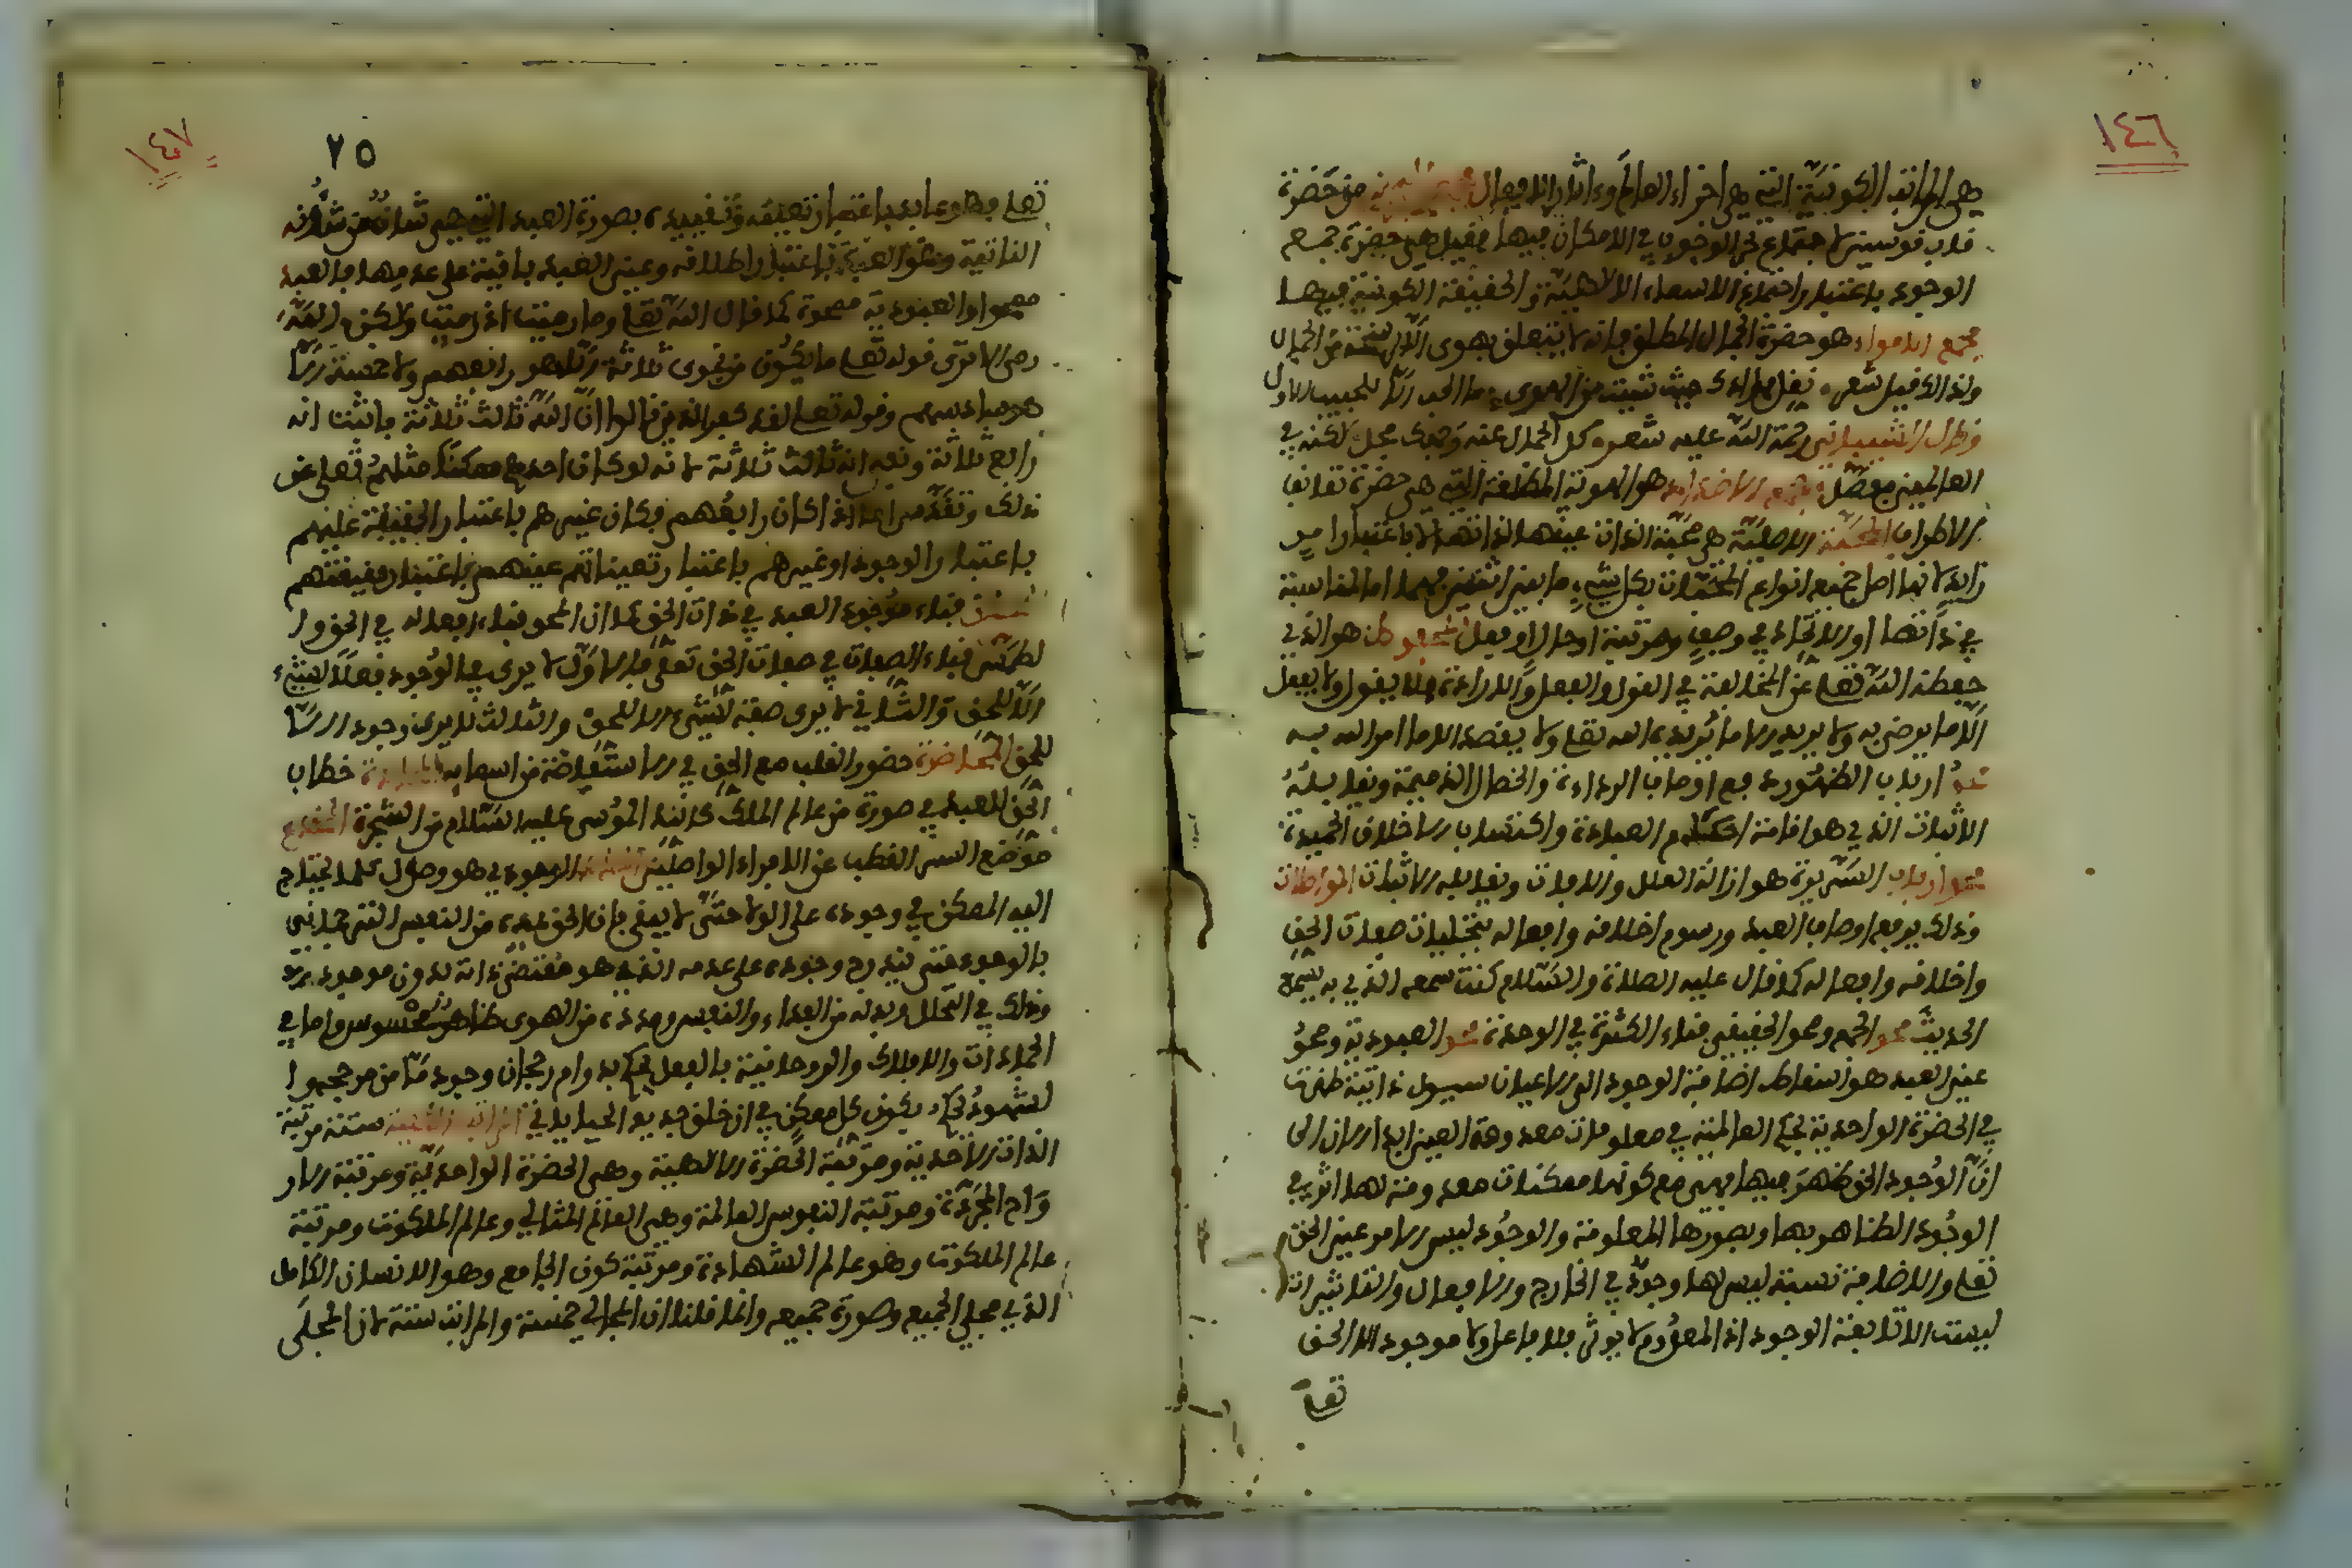 ١٤٦
هي المراتب الكونية التي هي اجزاء العالم وءاثار الافعال هي حضرة
قاب قوسين لاجتماع الوجوب في الامكان فيها وقيل هي حضرة جمع
الوجود باعتبار اجتماع الاسماء الالهية والحقيقة الكونية فيها
مجمع الاهواء هو حضرة الجمال المطلق فانه لا يتعلق بهوى الا من الجمال
ولذلك قيل شعره نقل فؤادك حيث شئت من الهوى ما الحب الا للحبيب الاول
وقال الشيباني رحمة الله عليه شعره كل الجمال وجهك مجملا لكنه في
العالمين مفصل مجمع الاضداد هو الهوية المطلقة التي هي حضرة تعانق
الاطراف المحبة الاصلية هي محبة الذات عينها لذاتها لا باعتبار امر
زايد لانها اصل جميع انواع المحبات بكل ما بين اثنين فهي اما لمناسبة
في ذاتها او لاتحاد في وصف ومرتبة او حال او فعل المحفوظ هو الذي
حفظه الله تعلى عن المخالفة في القول والفعل والارادة فلا يقول ولا يفعل
الا ما يرضى به ولا يريد الا ما يريده الله تعلى ولا يقصد الا ما امر الله به
محو ارباب الظهور رفع اوصاف العادة والخصال الذميمة ويقابله
الاثبات الذي هو اقامة احكام العبادة واكتساب الاخلاق الحميدة
محو ارباب السريرة هو ازالة العلل والافات ويقابله اثبات المواطلات
وذلك برفع اوصاف العبد ورسوم اخلاقه وافعاله بتجليات صفات الحق
واخلاقه وافعاله كما قال عليه الصلاة والسلام كنت سمعه الذي به يسمع
الحديث محو الجمع ومحو الحقيقي فناء الكثرة في الوحدة محو العبودية ومحو
عين العبد هو اسقاط اضافة الوجود الى الاعيان ذاتية ظهرت
في الحضرة الواحدية بحكم العالمية في معلومات معدومة العين ابدا الا ان
ان الوجود الحق ظهر فيها فهي مع كونها ممكنات معدومة لها اثر في
الوجود الظاهر بها وبصورها المعلومة والوجود ليس الا هو عين الحق
تعلى والاضافة نسبة ليس لها وجود في الخارج والافعال والتاثيرات
ليست الا تابعة الوجود اذ المعدوم لا يوثر فلا فاعل ولا موجود الا الحق
تعلى
١٤٧
٢٥
تعلى وهو عابد باعتبار تعينه وتقييده بصورة العبد التي هي شان من شؤنه
الذاتية وهو المعبود باعتبار اطلاقه وعين العبد باقية على عدمها فالعبد
ممحوا والعبودية ممحوة كما قال الله تعلى وما رميت اذ رميت ولكن الله
رمى الا ترى قوله تعلى ما يكون من نجوى ثلاثة الا هو رابعهم ولا خمسة الا
هو سادسهم وقوله تعلى لقد كفر الذين قالوا ان الله ثالث ثلاثة فاثبت انه
رابع ثلاثة ونفى انه ثالث ثلاثة لانه لو كان احدهم ممكنا مثلهم تعلى عن
ذلك وتقدس اما اذا كان رابعهم فكان غيرهم باعتبار الحقيقة عينهم
باعتبار الوجود او غيرهم باعتبار تعيناتهم عينهم باعتبار حقيقتهم
فناء وجود العبد في ذات الحق كما ان المحو فناء افعاله في الحق وا
لطمس فناء الصفات في صفات الحق تعلى فالاول لا يرى في الوجود فعلا لشيء
الا للحق والثاني لا يرى صفة لشيء الا للحق والثالث لا يرى وجود الا
للحق المحاضرة حضور القلب مع الحق في الاستفاضة من اسمايه المحادثة خطاب
الحق للعبد في صورة من عالم الملك كالنداء لموسى عليه السلام من الشجرة المخدع
موضع الستر القطب عن الافراد الواصلين الوجودي هو وصول كلما يحتاج
اليه الممكن في وجوده على الولا حتى لا يبقى فان الحق يمده من النفس الرحماني
بالوجود حتى يترجح وجوده على عدمه الذي هو مقتضى ذاته بدون موجده
وذلك في التحلل وبدله من الغذاء والنفس ومدده من الهوى ظاهر محسوس واما في
الجمادات والافلاك والروحانية بالعقل يحكم بدوام رجحان وجوده من مرجحه وا
لشهود يحكم بكون كل ممكن في ان خلق جديد المراتب الكلية ستة مرتبة
الذات الاحدية ومرتبة الحضرة الالهية وهي الحضرة الواحدية ومرتبة الار
واح المجردة ومرتبة النفوس العالمة وهي العالم المثالي وعالم الملكوت ومرتبة
عالم الملكوت وهو عالم الشهادة ومرتبة كون الجامع وهو الانسان الكامل
الذي مجلي الجميع وصورة جميعه وانما قلنا ان المجالي خمسة والمراتب ستة لان المجلى